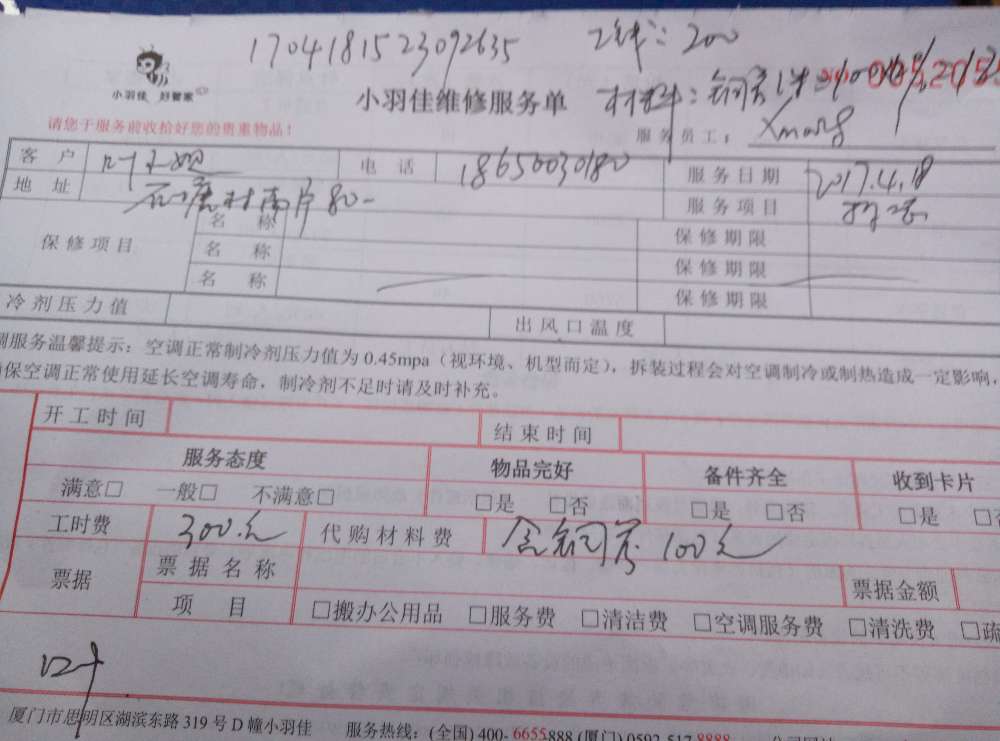 1704181523092635 工时：200
小羽佳 好管家
小羽佳维修服务单 材料：铜管1米
请您于服务前收拾好您的贵重物品！ 服务员工：
客户 叶小姐 电话 18650030180 服务日期 2017.4.18
地址 石塘村南片80- 服务项目
保修项目 名称 保修期限
名称 保修期限
名称 保修期限
冷剂压力值 出风口温度
调服务温馨提示：空调正常制冷剂压力值为0.45mpa（视环境、机型而定），拆装过程会对空调制冷或制热造成一定影响，
确保空调正常使用延长空调寿命，制冷剂不足时请及时补充。
开工时间 结束时间
服务态度 物品完好 备件齐全 收到卡片
满意□ 一般□ 不满意□ □是 □否 □是 □否 □是
工时费 300元 代购材料费 含铜管100元
票据 票据名称 票据金额
项目 □搬办公用品 □服务费 □清洁费 □空调服务费 □清洗费 □疏
叶
厦门市思明区湖滨东路319号D幢小羽佳 服务热线：(全国)400-6655888 (厦门)0592-517 8888